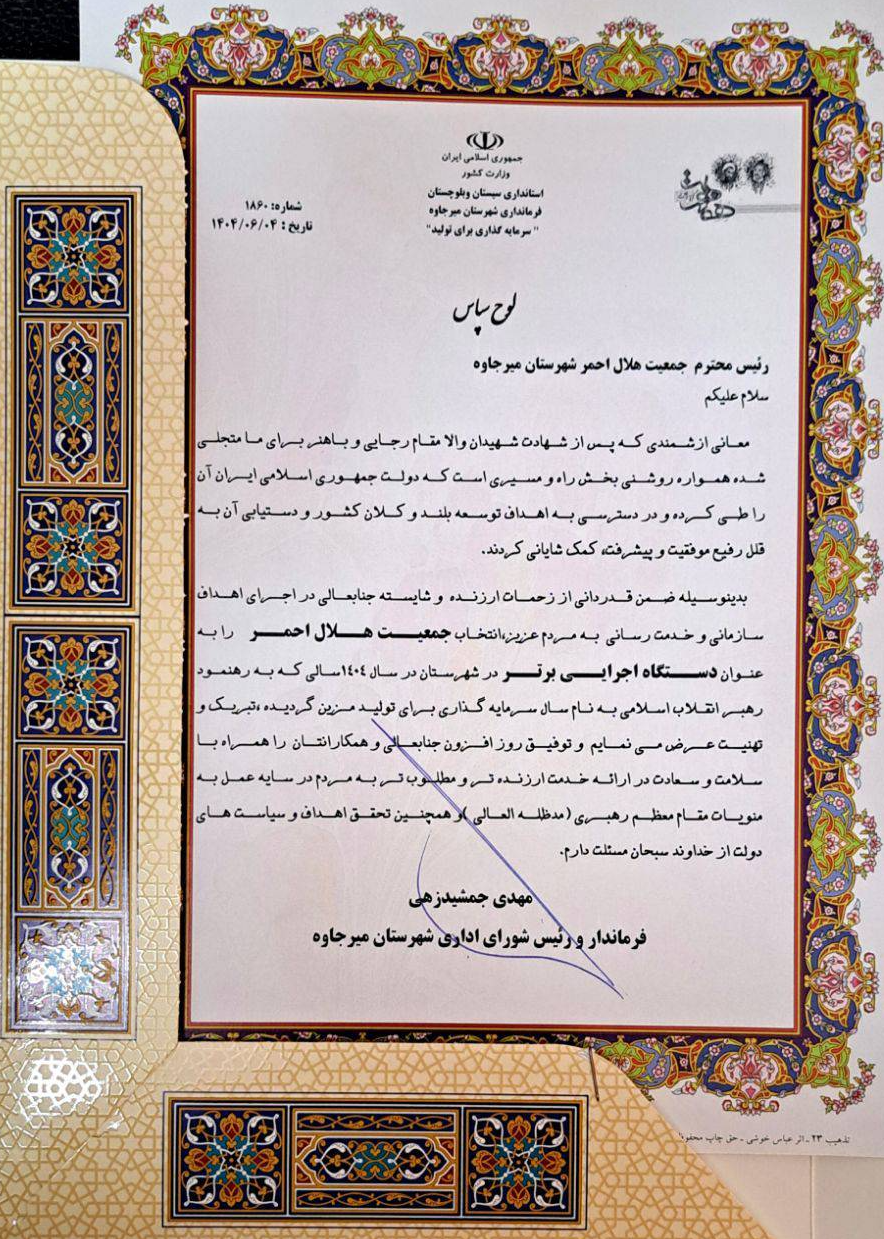 جمهوری اسلامی ایران
وزارت کشور
استانداری سیستان وبلوچستان
فرمانداری شهرستان میرجاوه
" سرمایه گذاری برای تولید"
شماره: ۱۸۶۰
تاریخ : ۱۴۰۴/۰۶/۰۴
لوح سپاس
رئیس محترم جمعیت هلال احمر شهرستان میرجاوه
سلام علیکم
معانی ارزشمندی که پس از شهادت شهیدان والا مقام رجایی و باهنر برای ما متجلی
شده همواره روشنی بخش راه و مسیری است که دولت جمهوری اسلامی ایران آن
را طی کرده و در دسترسی به اهداف توسعه بلند و کلان کشور و دستیابی آن به
قلل رفیع موفقیت و پیشرفت، کمک شایانی کردند.
بدینوسیله ضمن قدردانی از زحمات ارزنده و شایسته جنابعالی در اجرای اهداف
سازمانی و خدمت رسانی به مردم عزیز،انتخاب جمعیت هلال احمر را به
عنوان دستگاه اجرایی برتر در شهرستان در سال ۱۴۰۴سالی که به رهنمود
رهبر انقلاب اسلامی به نام سال سرمایه گذاری برای تولید مزین گردیده ،تبریک و
تهنیت عرض می نمایم و توفیق روز افزون جنابعالی و همکارانتان را همراه با
سلامت و سعادت در ارائه خدمت ارزنده تر و مطلوب تر به مردم در سایه عمل به
منویات مقام معظم رهبری (مدظله العالی )و همچنین تحقق اهداف و سیاست های
دولت از خداوند سبحان مسئلت دارم.
مهدی جمشیدزهی
فرماندار و رئیس شورای اداری شهرستان میرجاوه
تذهیب ۲۳ ـ اثر عباس خوشی ـ حق چاپ محفوظ